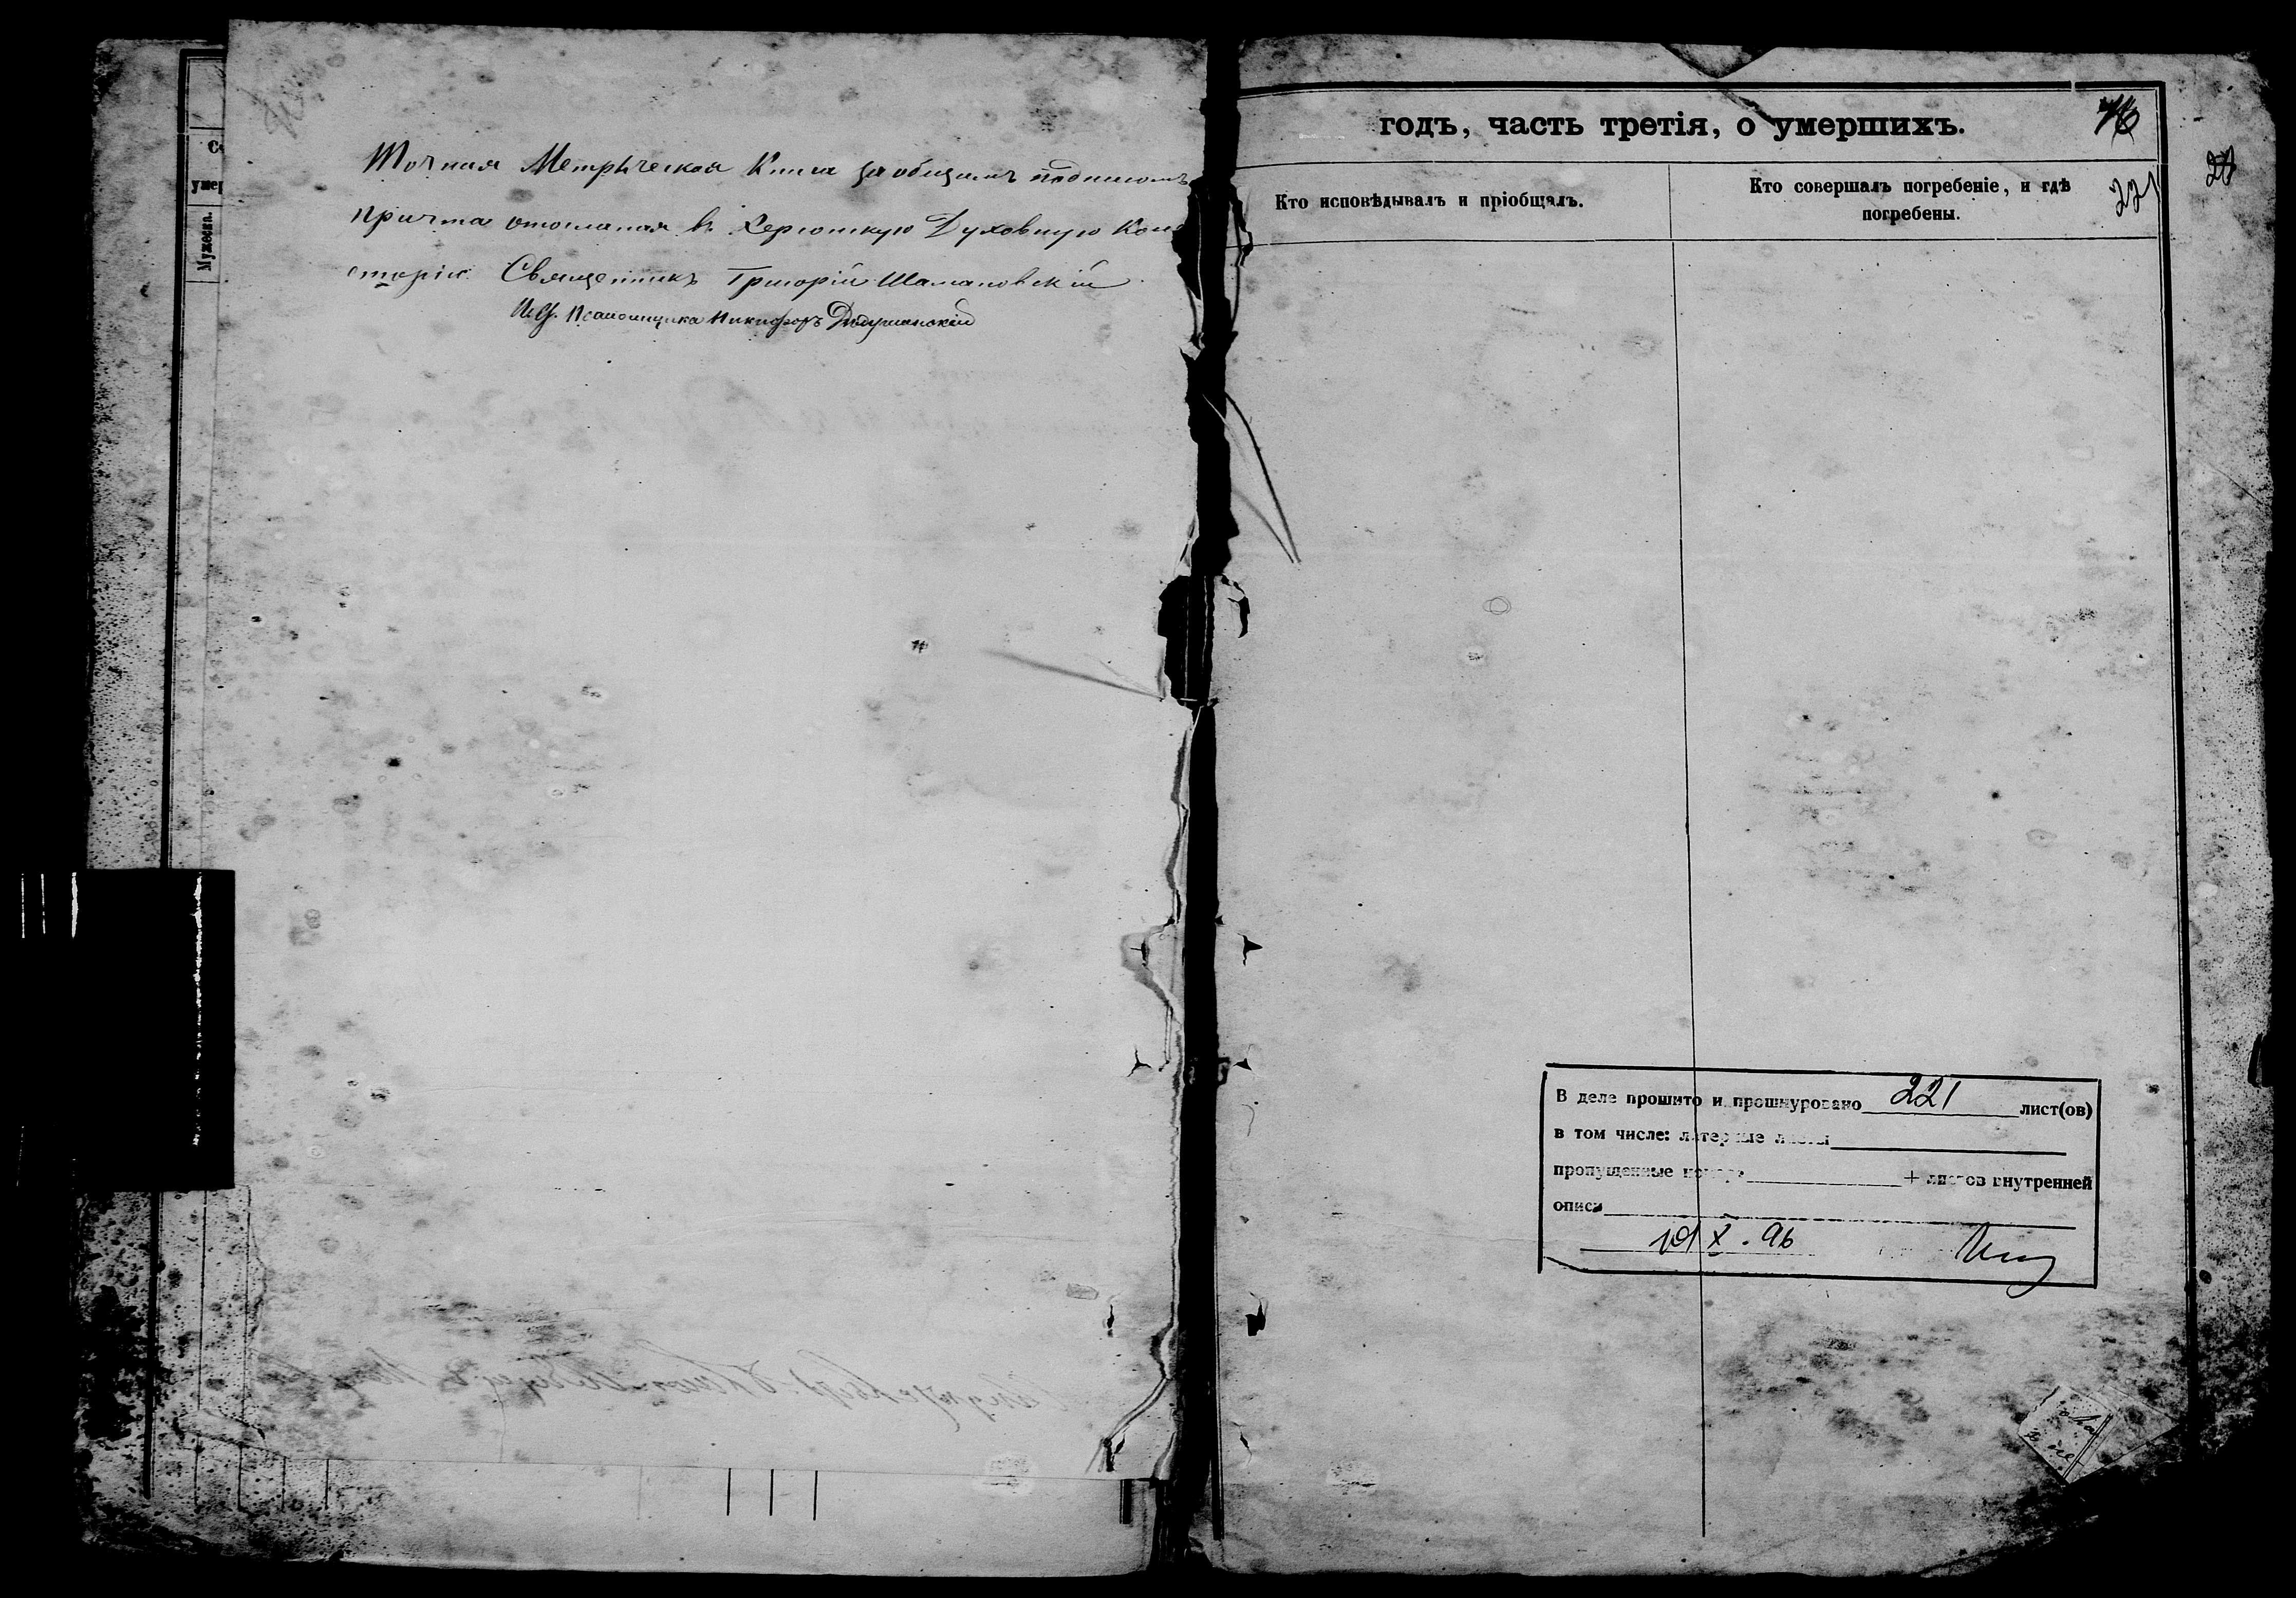 Точная Метрическая Книга за общимъ подписомъ
причта отослана въ Херсонскую Духовную Кон
сторію. Священникъ Григорій Шамановскій
И. д. Псаломщика Никифоръ
Мужеска.
годъ, часть третія, о умершихъ.
Кто исповѣдывалъ и пріобщалъ.
Кто совершалъ погребеніе, и гдѣ
погребены.
221
В деле прошито и прошнуровано 221 лист(ов)
в том числе: литерные листы
пропущенные номера + листов внутренней
описи
X . 96